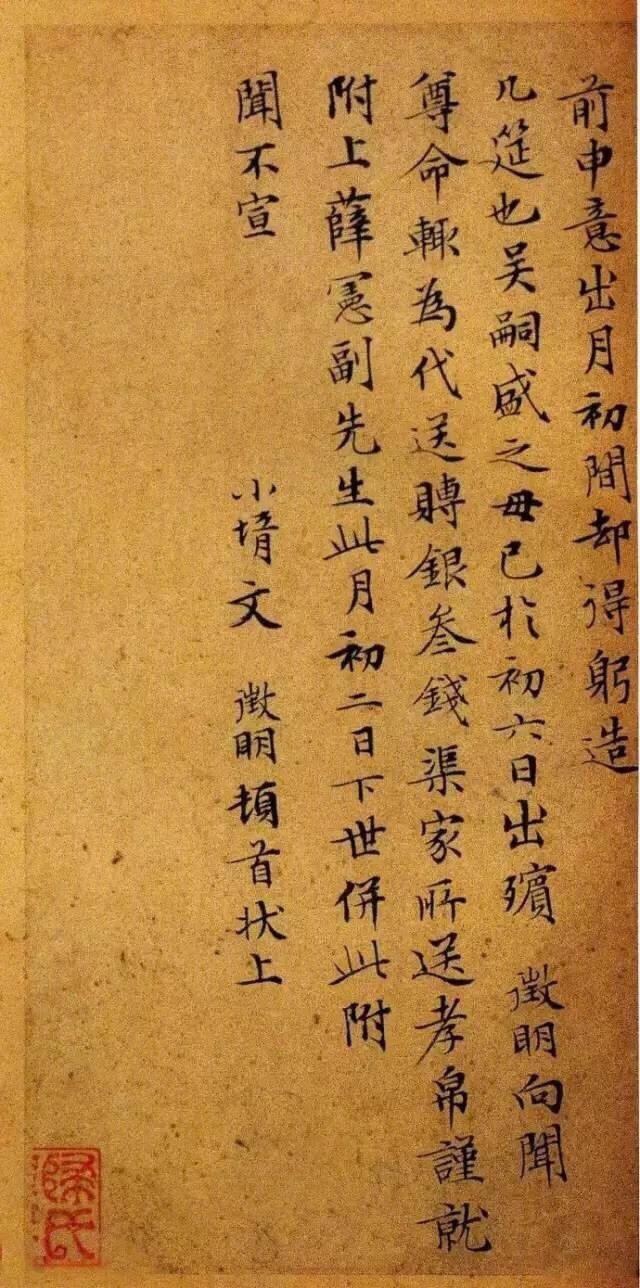 前申意出月初間却得躬造
几筵也吴嗣盛之母已於初六日出殯 徵明向聞
尊命輙為代送賻銀叁錢渠家所送孝帛謹就
附上薛憲副先生此月初二日下世併此附
聞不宣 小壻文 徵明頓首狀上